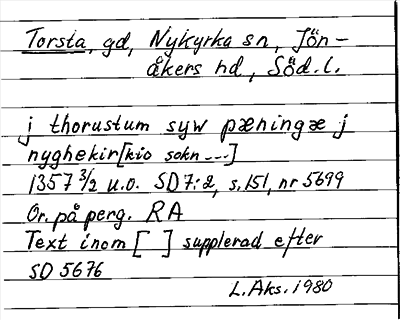 Torsta, gd, Nykyrka sn, Jön-
åkers hd, Söd.l.
j thorustum syw pæningæ j
nyghekir[kio sokn ---]
1357 3/2 u.o. SD 7:2, s.151, nr 5699
Or. på perg. RA
Text inom [ ] supplerad efter
SD 5676
L.Aks. 1980